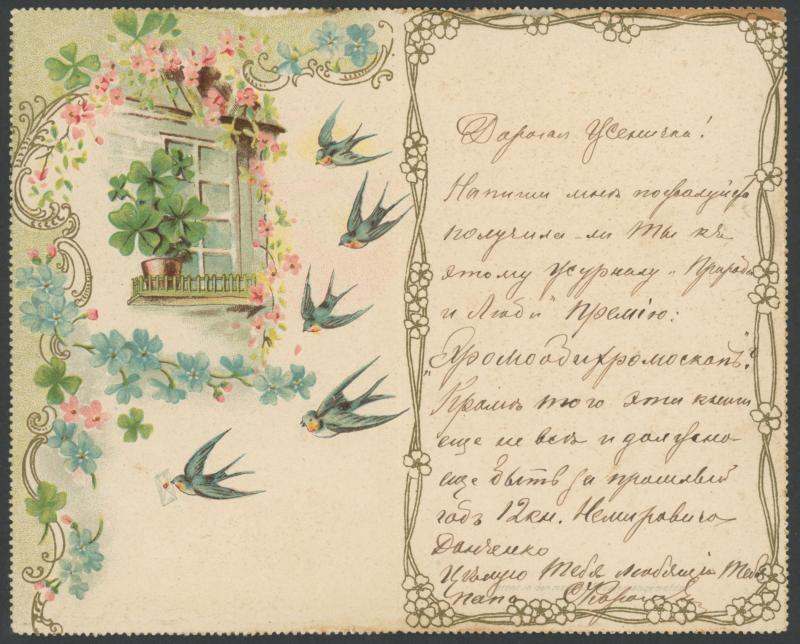 Дорогая Ксеничка!
Напиши мнѣ пожалуйста
получила-ли Ты къ
этому журналу „Природа
и Люди" премію:
Кромѣ того эти книги
еще не всѣ и должно
еще быть за прошлый
годъ 12 кн. Немировича
Данченко
Цѣлую Тебя любящій Тебя
папа